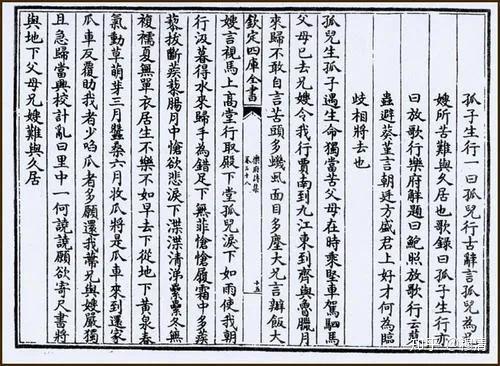 孤子生行一曰孤兒行古辭言孤兒為兄
嫂所苦難與久居也歌錄曰孤子生行亦
曰放歌行樂府解題曰鮑照放歌行云蓼
蟲避葵堇言朝廷方盛君上好才何為臨
歧相將去也
孤兒生孤子遇生命獨當苦父母在時乘堅車駕駟馬
父母已去兄嫂令我行賈南到九江東到齊與魯臘月
來歸不敢自言苦頭多蟣虱面目多塵大兄言辦飯大
欽定四庫全書
樂府詩集
卷三十八
十五
嫂言視馬上高堂行取殿下堂孤兒淚下如雨使我朝
行汲暮得水來歸手為錯足下無菲愴愴履霜中多蒺
藜拔斷蒺藜腸月中愴欲悲淚下渫渫清涕纍纍冬無
複襦夏無單衣居生不樂不如早去下從地下黃泉春
氣動草萌芽三月蠶桑六月收瓜將是瓜車來到還家
瓜車反覆助我者少啗瓜者多願還我蒂兄與嫂嚴獨
且急歸當興校計亂曰里中一何譊譊願欲寄尺書將
與地下父母兄嫂難與久居
知乎